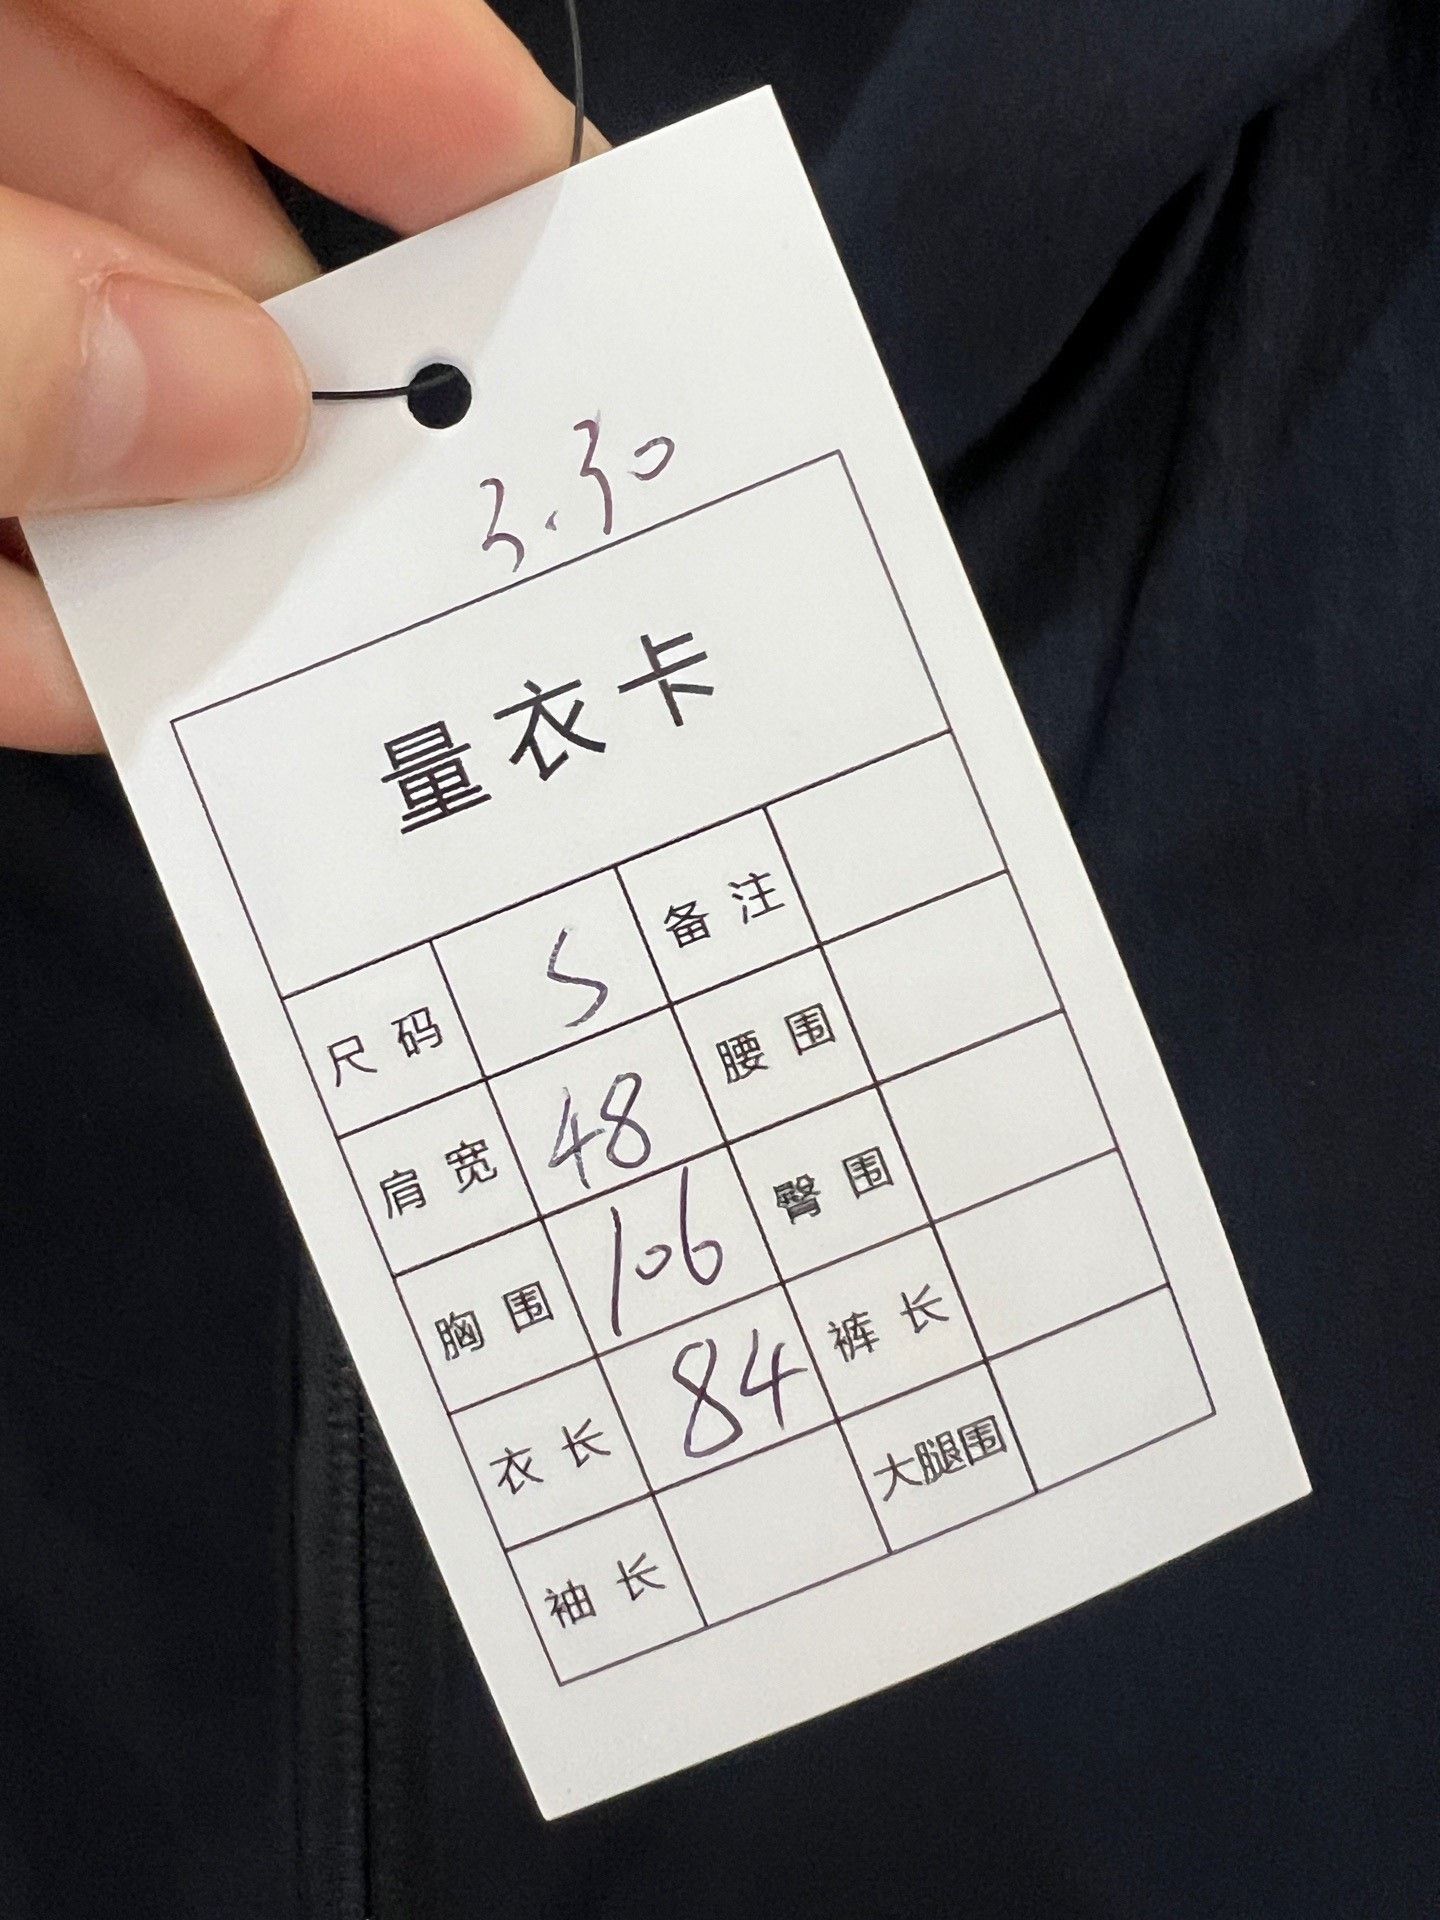 3.30
量衣卡
尺码 S 备注
肩宽 48 腰围
胸围 106 臀围
衣长 84 裤长
袖长 大腿围